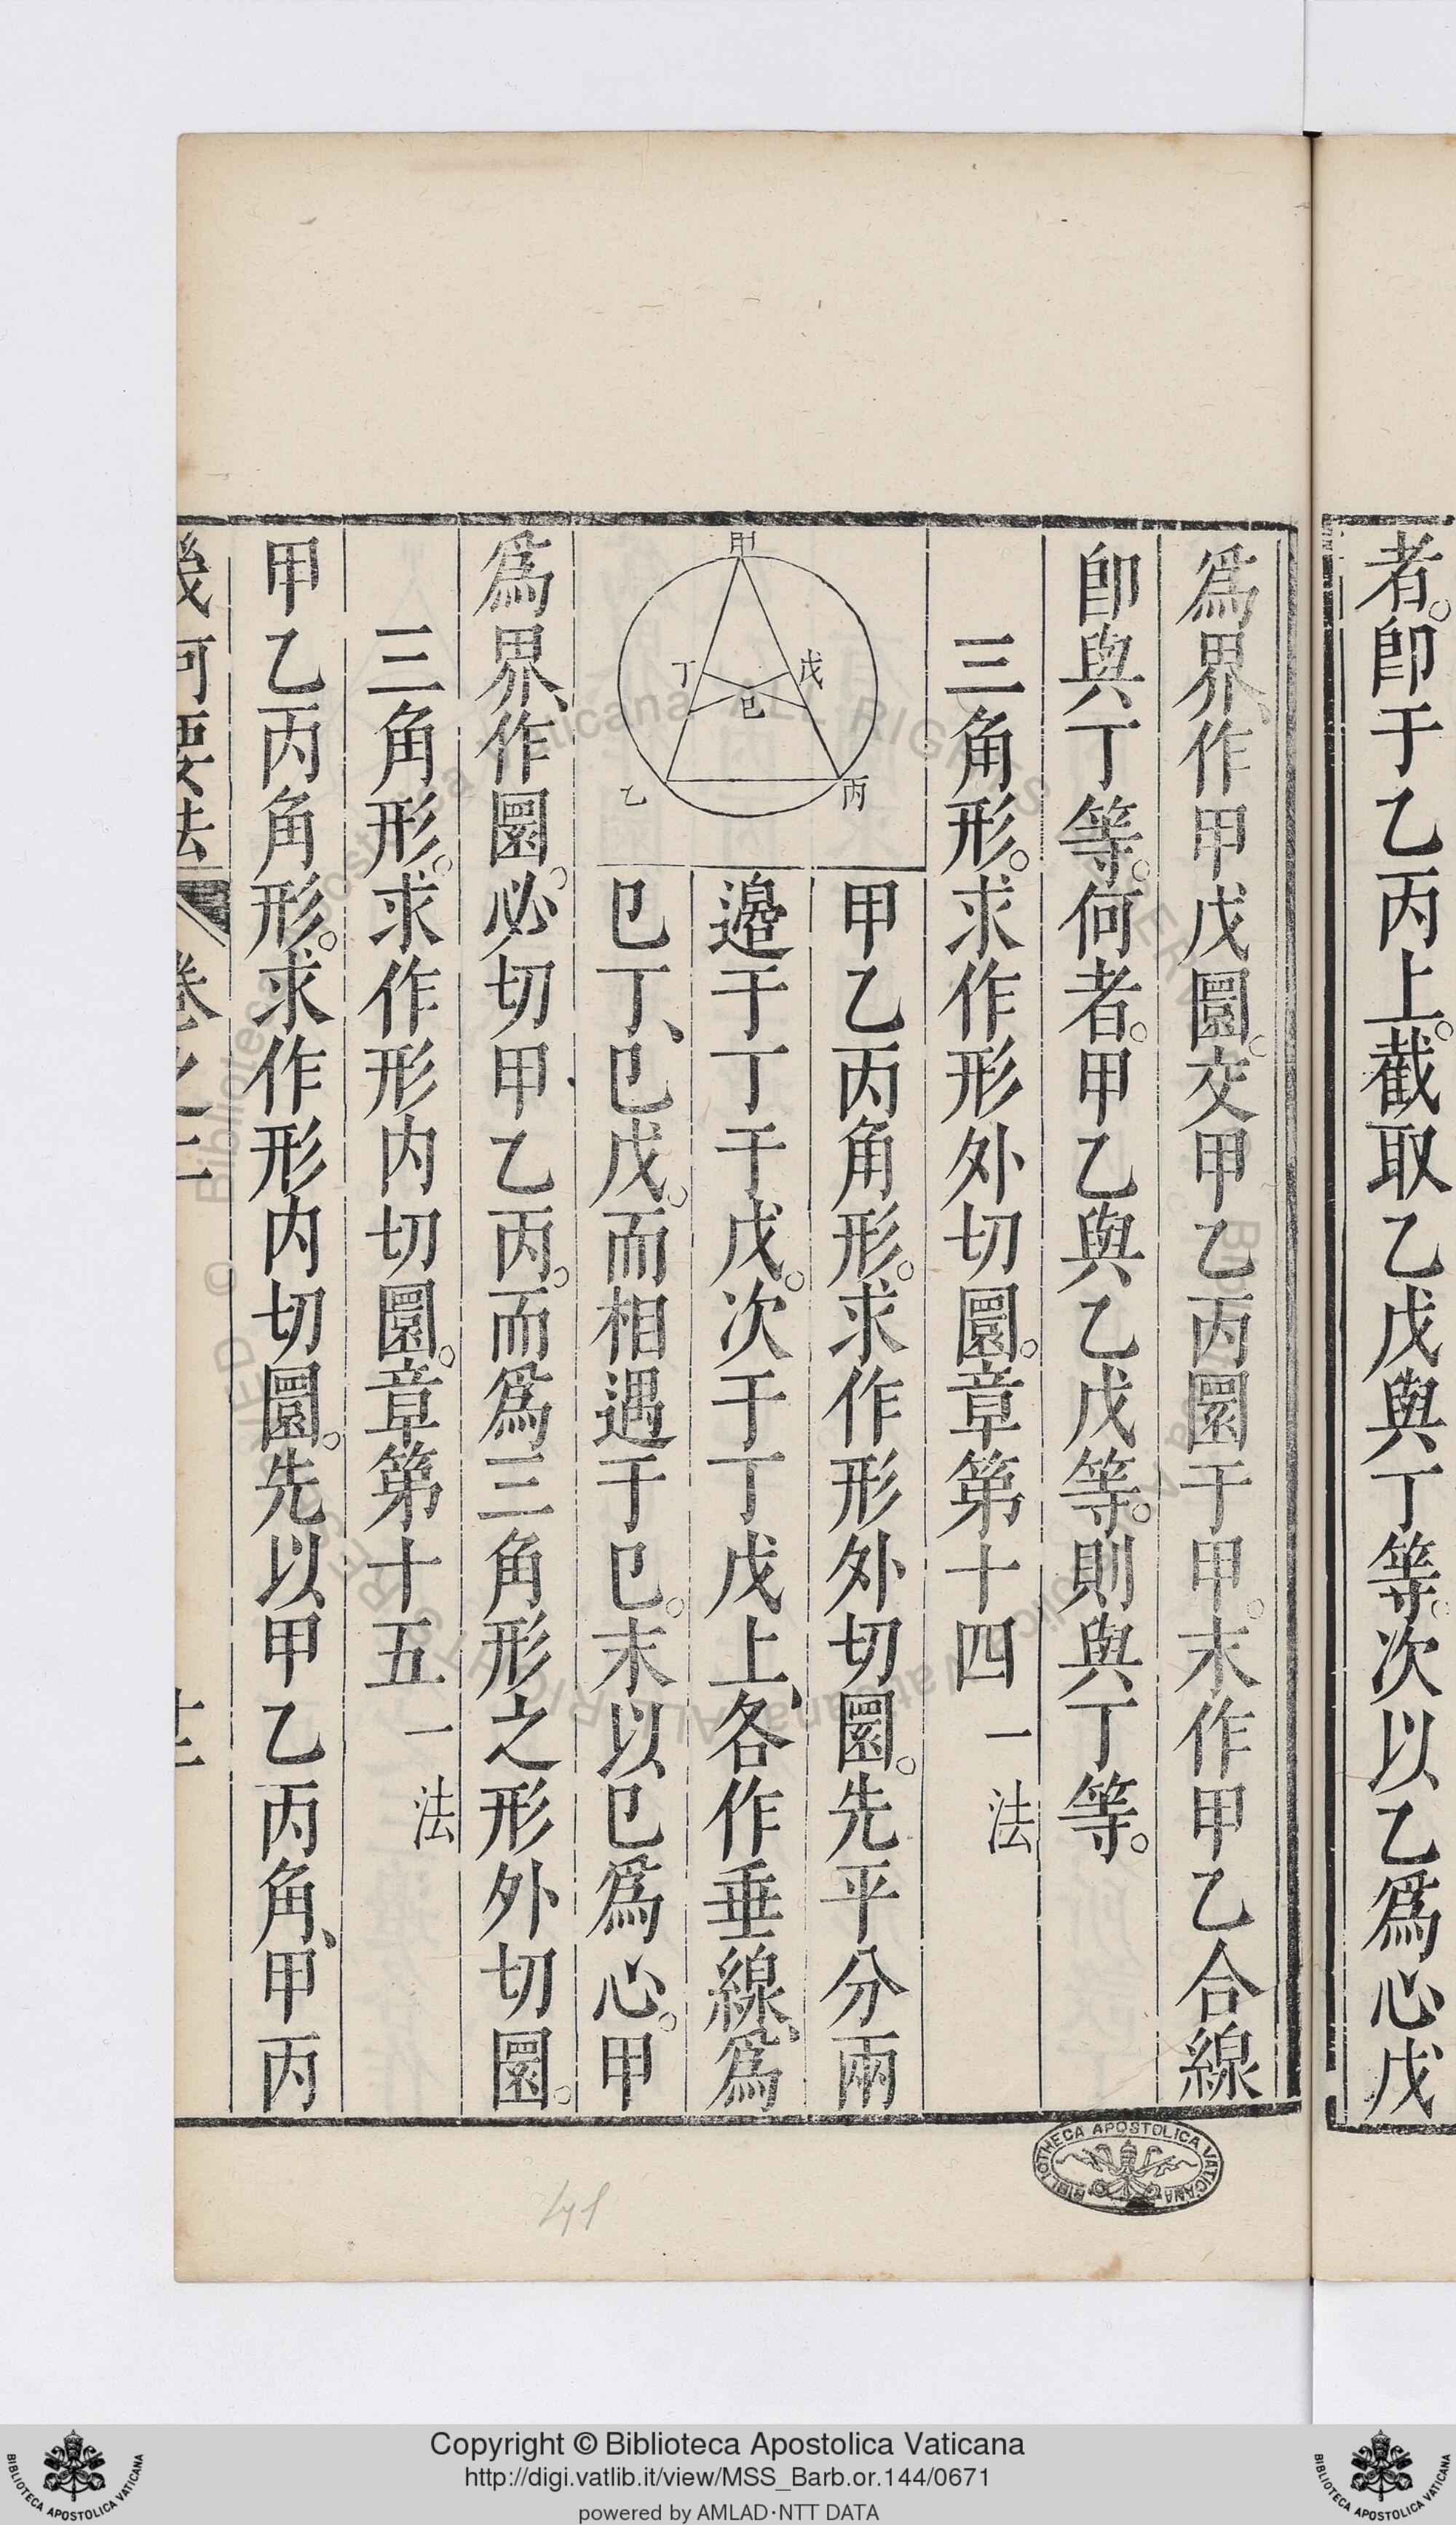 者。即于乙丙上。截取乙戊與丁等。次以乙爲心戊
爲界、作甲戊圜。交甲乙丙圜于甲。末作甲乙合線
即與丁等。何者。甲乙與乙戊等。則與丁等。
三角形。求作形外切圜。章第十四 一法
甲
丁
戊
已
乙
丙
甲乙丙角形。求作形外切圜。先平分兩
邉于丁于戊。次于丁戊上、各作垂線、爲
已丁、已戊。而相遇于已。末以已爲心。甲
爲界、作圜。必切甲乙丙。而爲三角形之形外切圜。
三角形。求作形内切圜。章第十五 一法
甲乙丙角形。求作形内切圜。先以甲乙丙角、甲丙
幾何要法 卷之二 十三
BIBLIOTHECA APOSTOLICA VATICANA
Copyright © Biblioteca Apostolica Vaticana
http://digi.vatlib.it/view/MSS_Barb.or.144/0671
powered by AMLAD·NTT DATA
BIBLIOTECA APOSTOLICA VATICANA
BIBLIOTECA APOSTOLICA VATICANA